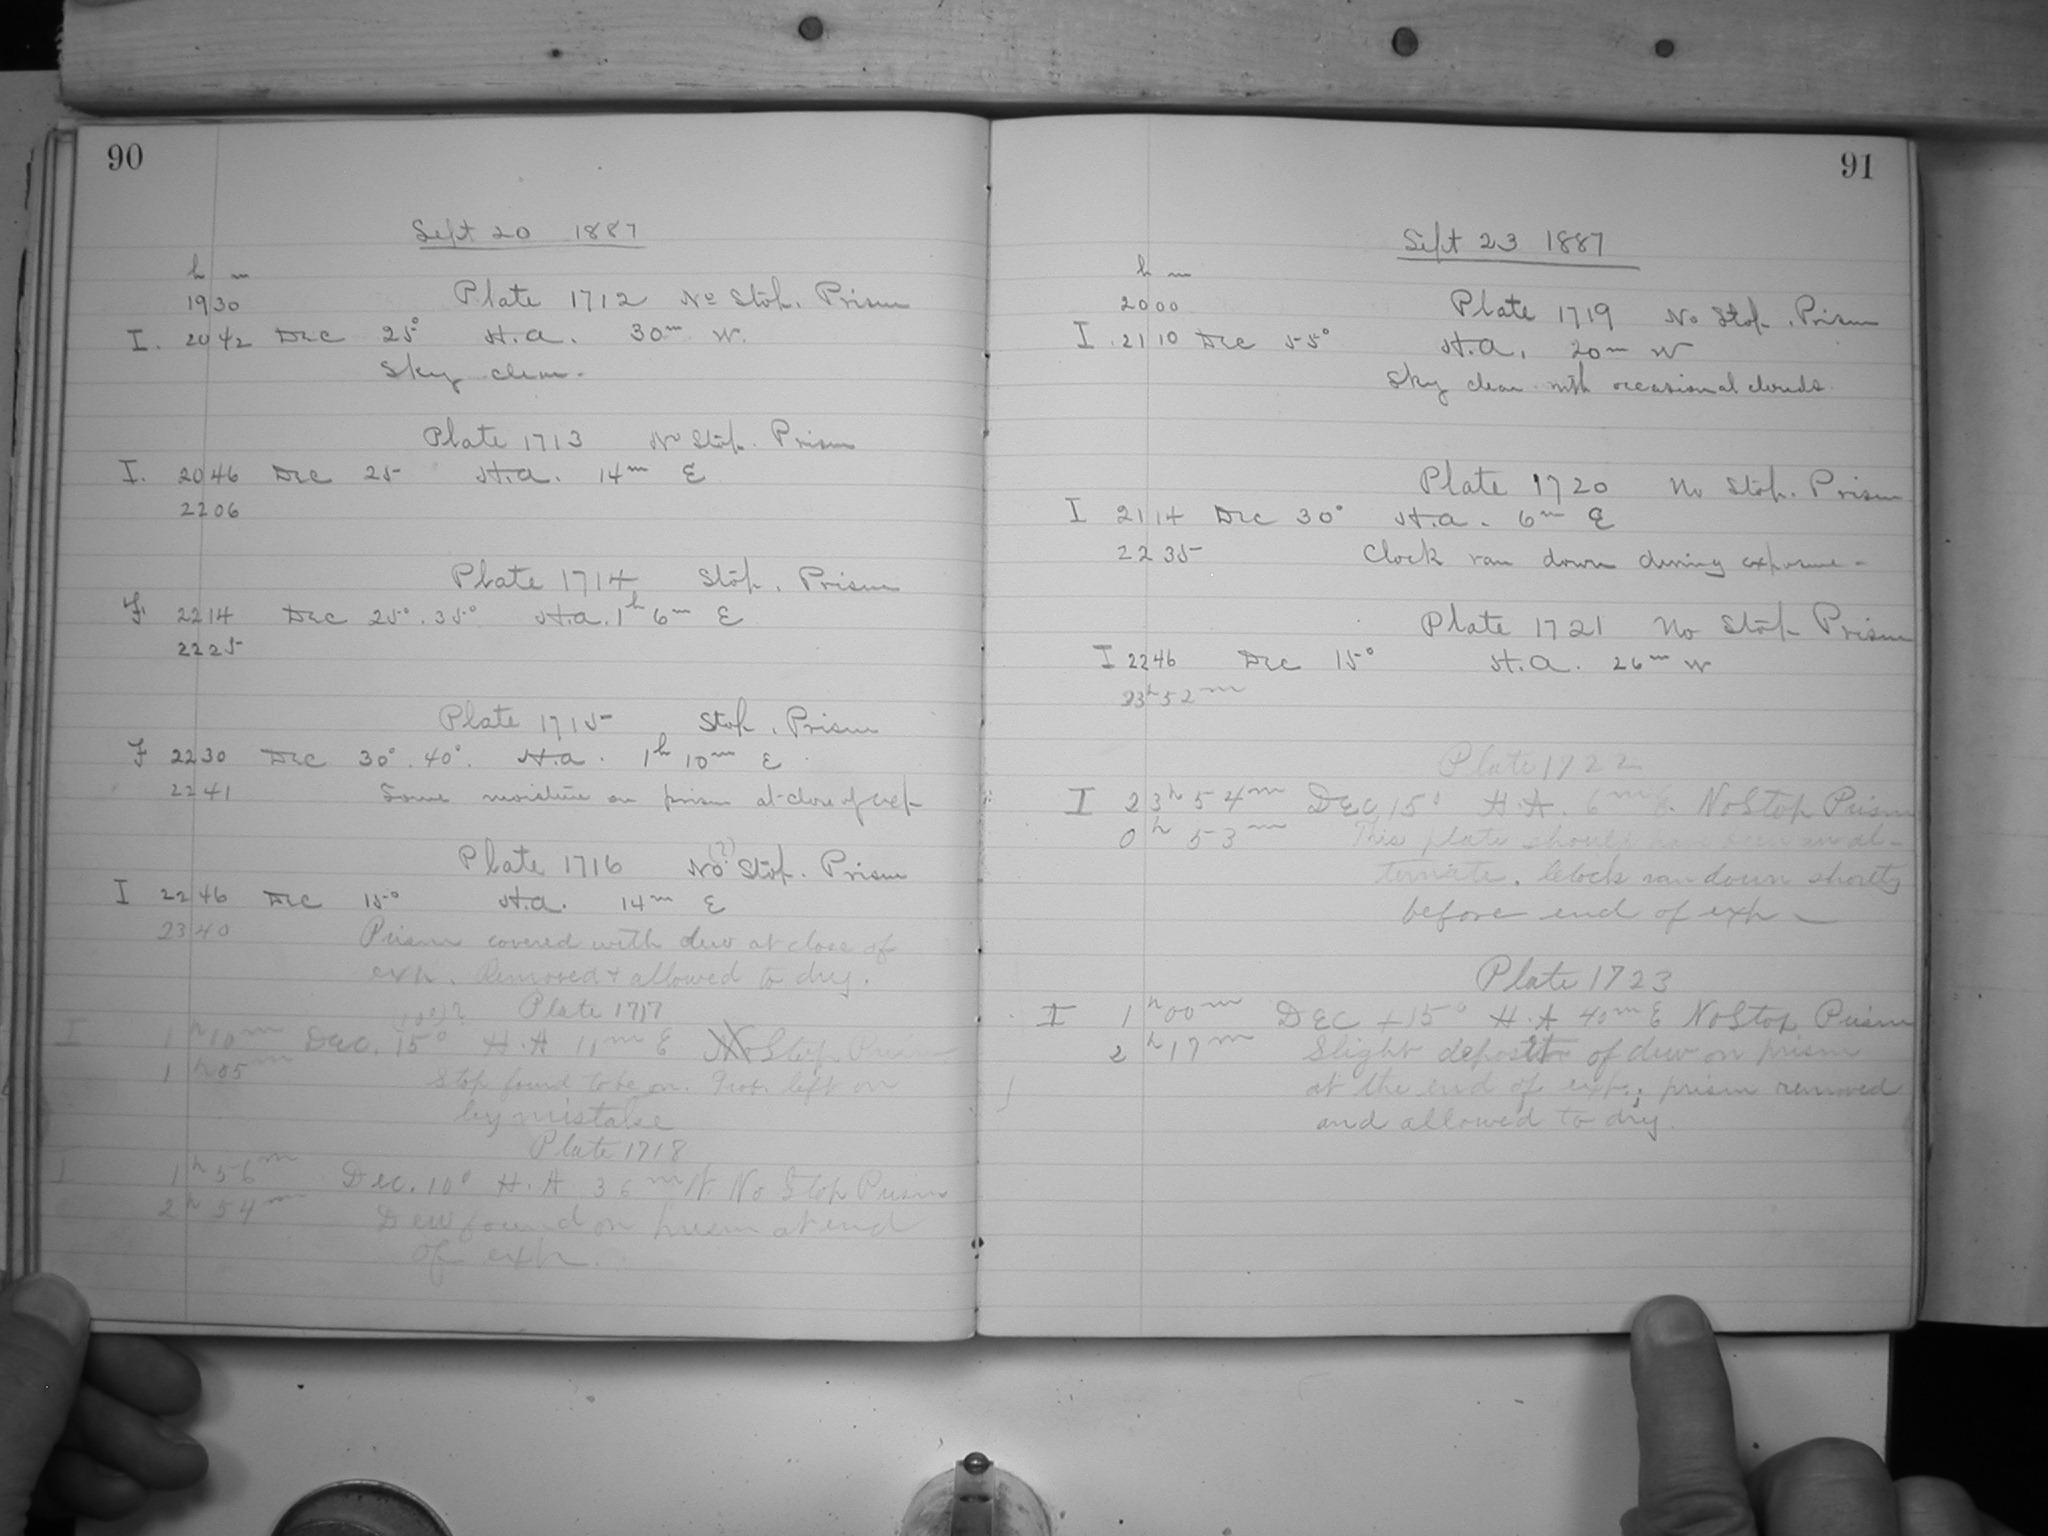 90
Sept 20 1887
h m
19 30 Plate 1712 No Stop. Prism
I. 20 42 Dec 25° H.A. 30m W.
Sky clear.
Plate 1713 No Stop. Prism
I. 20 46 Dec 25 H.A. 14m E
22 06
Plate 1714 Stop. Prism
F. 22 14 Dec 25°.35° H.A. 1h 6m E
22 25
Plate 1715 Stop. Prism
F 22 30 Dec 30°.40°. H.A. 1h 10m E
22 41 Some moisture on prism at close of exp
Plate 1716 No (?) Stop. Prism
I 22 46 Dec 15° H.A. 14m E
23 40 Prism covered with dew at close of
exp. Removed & allowed to dry.
Plate 1717
I 1h 10m Dec. 15° H.A 11m E No Stop Prism
1h 05m Stop found to be on. left on
by mistake
Plate 1718
I 1h 56m Dec. 10° H.A 36m W. No Stop Prism
2h 54m Dew found on prism at end
of exp.
91
Sept 23 1887
h m
20 00 Plate 1719 No Stop. Prism
I. 21 10 Dec 55° H.A. 20m W
Sky clear with occasional clouds.
Plate 1720 No Stop. Prism
I 21 14 Dec 30° H.A. 6m E
22 35 Clock ran down during exposure-
Plate 1721 No Stop Prism
I 22 46 Dec 15° H.A. 26m W
23h 52m
Plate 1722
I 23h 54m DEC 15° H.A. 6m E. No Stop Prism
0h 53m This plate should have been an al-
ternate. Clock ran down shortly
before end of exp -
Plate 1723
I 1h 00m DEC +15° H.A 40m E No Stop Prism
2h 17m Slight deposit of dew on prism
at the end of exp.; prism removed
and allowed to dry.